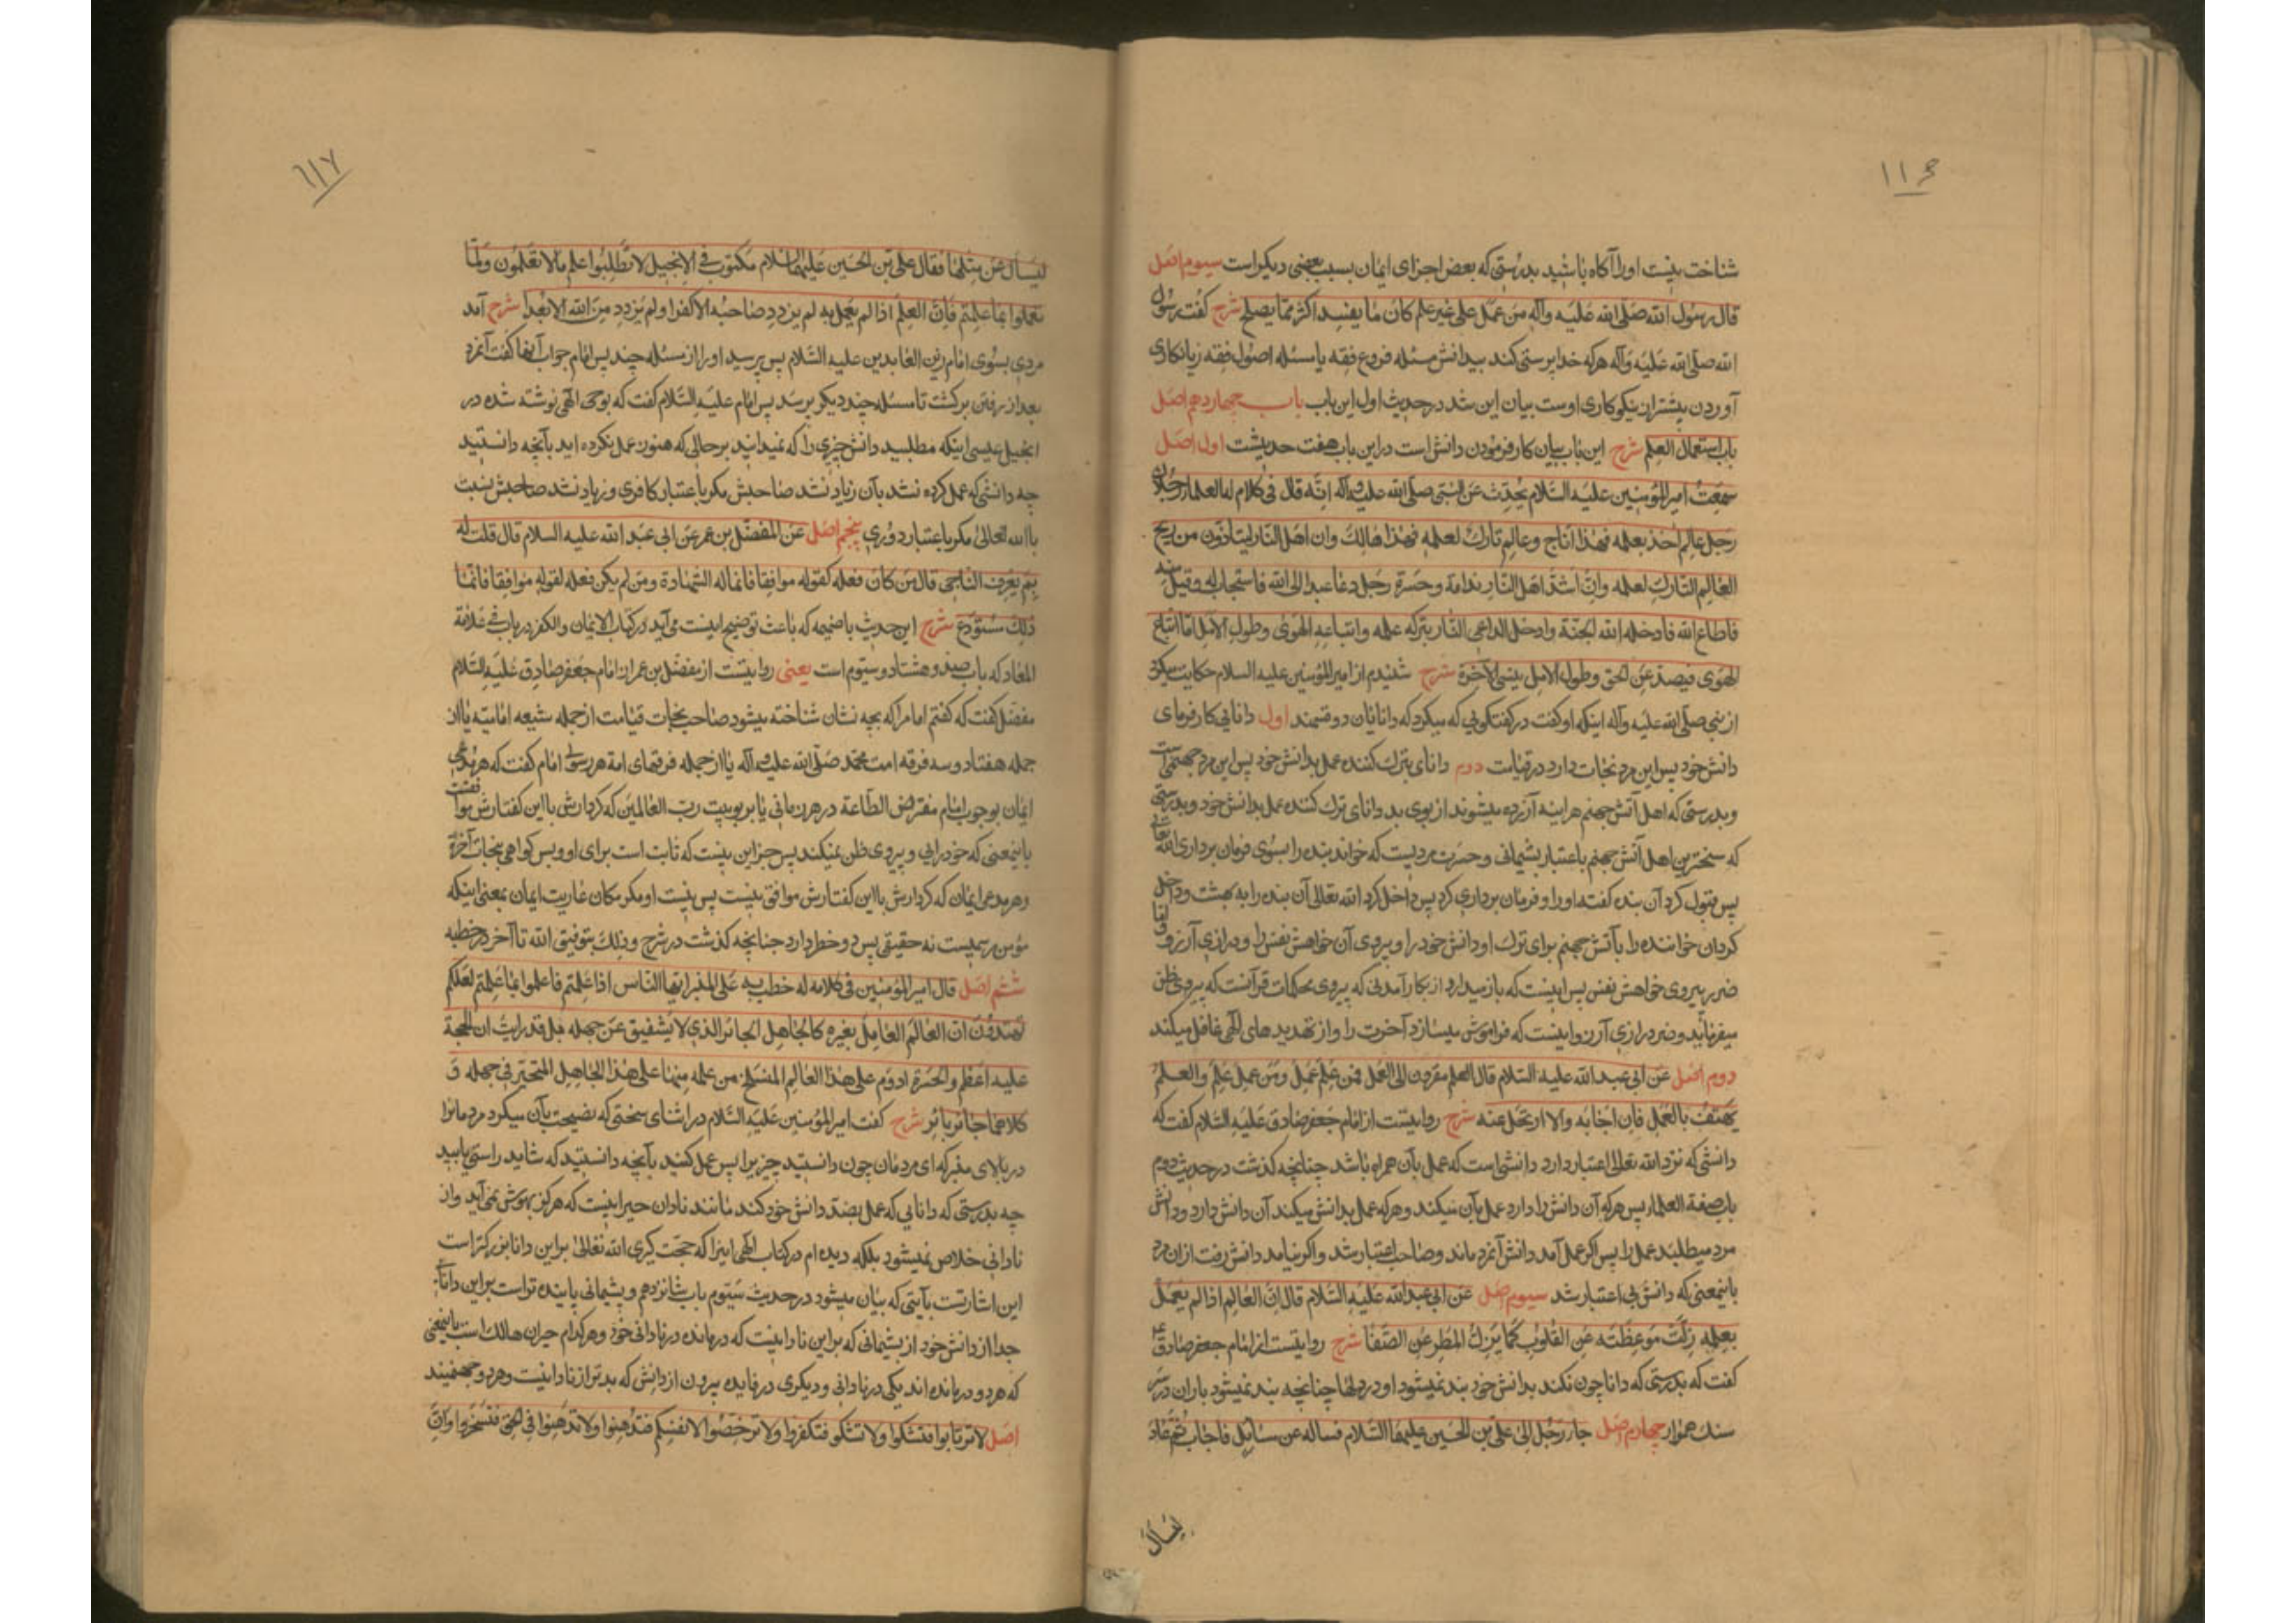 ۱۱۶
شناخت نیست او را آکاه باشید بدرستی که بعض اجزای ایمان بسبب بعضی دیکر است سیوم اصل
قال رسول الله صلی الله علیه وآله من عمل علی غیر علم کان ما یفسد اکثر مما یصلح شرح کفت رسول
الله صلی الله علیه وآله هرکه خدا پرستی کند بیدانش مسئله فروع فقه یا مسئله اصول فقه زیانکاری
آوردن بیشتر از نیکوکاری اوست بیان این شد در حدیث اول این باب باب چهاردهم اصل
باب استعمال العلم شرح این باب بیان کار فرمودن دانش است در این باب هفت حدیثست اول اصل
سمعت امیرالمؤمنین علیه السلام یحدث عن النبی صلی الله علیه وآله انه قال فی کلام له العلماء رجلان
رجل عالم آخذ بعلمه فهذا ناج وعالم تارک لعلمه فهذا هالک وان اهل النار لیتاذون من ریح
العالم التارک لعلمه وان اشد اهل النار ندامة وحسرة رجل دعا عبدا الی الله فاستجاب له وقبل منه
فاطاع الله فادخله الله الجنة وادخل الداعی النار بترکه علمه واتباعه الهوی وطول الامل اما اتباع
الهوی فیصد عن الحق وطول الامل ینسی الآخرة شرح شنیدم از امیرالمؤمنین علیه السلام حکایت میکرد
از نبی صلی الله علیه وآله اینکه او کفت در کفتکویی که میکرد که دانایان دو قسمند اول دانائی کار فرمای
دانش خود پس این مرد نجات دارد در قیامت دوم دانای بترک کننده عمل بدانش خود پس این مرد جهنمی است
وبدرستی که اهل آتش جهنم هراینه آزرده میشوند از بوی بد دانای ترک کننده عمل بدانش خود وبدرستی
که سختترین اهل آتش جهنم باعتبار پشیمانی وحسرت مردیست که خواند بنده را بسوی فرمان برداری الله تعالی
پس قبول کرد آن بنده کفته او را وفرمان برداری کرد پس داخل کرد الله تعالی آن بنده را به بهشت وداخل
کردان خواننده را بآتش جهنم برای ترک او دانش خود را وپیروی آن خواهش نفس را ودرازی آرزو اما
ضرر پیروی خواهش نفس پس اینست که باز میدارد از بکار آمدنی که پیروی محکمات قرآنست که پیروی ظن
میفرماید وضرر درازی آرزو اینست که فراموش میسازد آخرت را واز تهدیدهای الهی غافل میکند
دوم اصل عن ابی عبد الله علیه السلام قال العلم مقرون الی العمل فمن علم عمل ومن عمل علم والعلم
یهتف بالعمل فان اجابه والا ارتحل عنه شرح روایتست از امام جعفر صادق علیه السلام کفت که
دانشی که نزد الله تعالی اعتبار دارد دانشی است که عمل بآن همراه باشد چنانچه کذشت در حدیث دوم
باب صفة العلماء پس هرکه آن دانش را دارد عمل بآن میکند وهرکه عمل بدانش میکند آن دانش دارد ودانش
مرد میطلبد عمل را پس اکر عمل آمد دانش آنزد ماند وصاحب اعتبار شد واکر نیامد دانش رفت از ان مرد
باینمعنی که دانش بی اعتبار شد سیوم اصل عن ابی عبد الله علیه السلام قال ان العالم اذا لم یعمل
بعلمه زلت موعظته عن القلوب کما یزل المطر عن الصفا شرح روایتست از امام جعفر صادق ع
کفت که بدرستی که دانا چون نکند بدانش خود بند نمیشود او در دلها چنانچه بند نمیشود باران در سر
سنک هموار چهارم اصل جاء رجل الی علی بن الحسین علیهما السلام فساله عن مسائل فاجاب ثم عاد
لیسال
۱۱۷
لیسال عن مثلها فقال علی بن الحسین علیهما السلام مکتوب فی الانجیل لا تطلبوا علم ما لا تعلمون ولما
تعملوا بما علمتم فان العلم اذا لم یعمل به لم یزدد صاحبه الا کفرا ولم یزدد من الله الا بعدا شرح آمد
مردی بسوی امام زین العابدین علیه السلام پس پرسید او را از مسئله چند پس امام جواب آنها کفت آنمرد
بعد از رفتن برکشت تا مسئله چند دیکر پرسد پس امام علیه السلام کفت که بوحی الهی نوشته شده در
انجیل عیسی اینکه مطلبید دانش چیزی را که نمیدانید بر حالی که هنوز عمل نکرده اید بآنچه دانستید
چه دانشی که عمل کرده نشد بآن زیاد نشد صاحبش مکر باعتبار کافری وزیاد نشد صاحبش نسبت
با الله تعالی مکر باعتبار دوری پنجم اصل عن المفضل بن عمر عن ابی عبد الله علیه السلام قال قلت له
بم یعرف الناجی قال من کان فعله لقوله موافقا فانما له الشهادة ومن لم یکن فعله لقوله موافقا فانما
ذلک مستودع شرح این حدیث با ضمیمه که باعث توضیح اینست می آید در کتاب الایمان والکفر در باب فی علامة
المعار که باب صد وهشتاد وسیوم است یعنی روایتست از مفضل بن عمر از امام جعفر صادق علیه السلام
مفضل کفت که کفتم امام را که بچه نشان شناخته میشود صاحب نجات قیامت از جمله شیعه امامیه یا از
جمله هفتاد وسه فرقه امت محمد صلی الله علیه وآله یا از جمله فرقهای امة هر رسول امام کفت که هر مدعی
ایمان بوجوب امام مفترض الطاعة در هر زمانی یا بربوبیت رب العالمین که کردارش با این کفتارش موافقست
باینمعنی که خودرایی وپیروی ظن نمیکند پس جز این نیست که ثابت است برای او وبس کواهی بنجات آخرة
وهر مدعی ایمان که کردارش با این کفتارش موافق نیست پس نیست او مکر مکان عاریت ایمان بمعنی اینکه
مؤمن رسمیست نه حقیقی پس دو خطر دارد چنانچه کذشت در شرح وذلک بتوفیق الله تا آخر در خطبه
ششم اصل قال امیرالمؤمنین فی کلام له خطب به علی المنبر ایها الناس اذا علمتم فاعملوا بما علمتم لعلکم
تهتدون ان العالم العامل بغیره کالجاهل الحائر الذی لا یستفیق عن جهله بل قد رایت ان الحجة
علیه اعظم والحسرة ادوم علی هذا العالم المنسلخ من علمه منها علی هذا الجاهل المتحیر فی جهله و
کلاهما حائر بائر شرح کفت امیرالمؤمنین علیه السلام در اثنای سخنی که نصیحت بآن میکرد مردمانرا
در بالای منبر که ای مردمان چون دانستید چیزی را پس عمل کنید بآنچه دانستید که شاید راستی یابید
چه بدرستی که دانایی که عمل بضد دانش خود کند مانند نادان حیرانیست که هرکز بهوش نمی آید واز
نادانی خلاص نمیشود بلکه دیده ام در کتاب الهی اینرا که حجت کیری الله تعالی براین دانا بزرکتر است
این اشارتست بآیتی که بیان میشود در حدیث سیوم باب شانزدهم وپشیمانی پاینده تر است براین دانای
جدا از دانش خود از پشیمانی که براین نادانیست که درمانده در نادانی خود وهرکدام حیران هالک است باینمعنی
که هردو درمانده اند یکی در نادانی ودیکری در فایده بیرون از دانش که بدتر از نادانیست وهردو جهنمیند
اصل لا ترتابوا فتشکوا ولا تشکوا فتکفروا ولا ترخصوا لانفسکم فتدهنوا ولا تدهنوا فی الحق فتخسروا وان